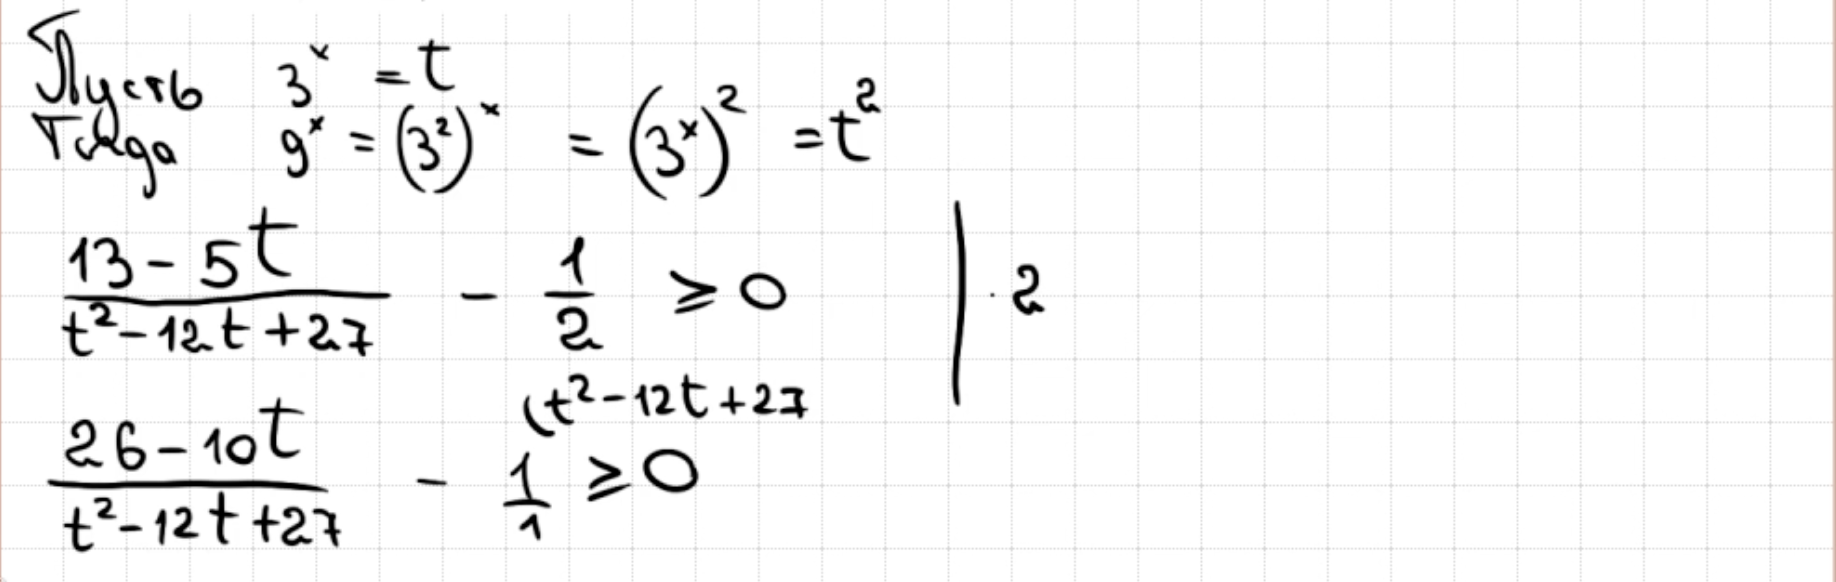 Пусть 3^x = t
Тогда 9^x = (3^2)^x = (3^x)^2 = t^2
(13 - 5t)/(t^2 - 12t + 27) - 1/2 ≥ 0 | · 2
(t^2 - 12t + 27
(26 - 10t)/(t^2 - 12t + 27) - 1/1 ≥ 0